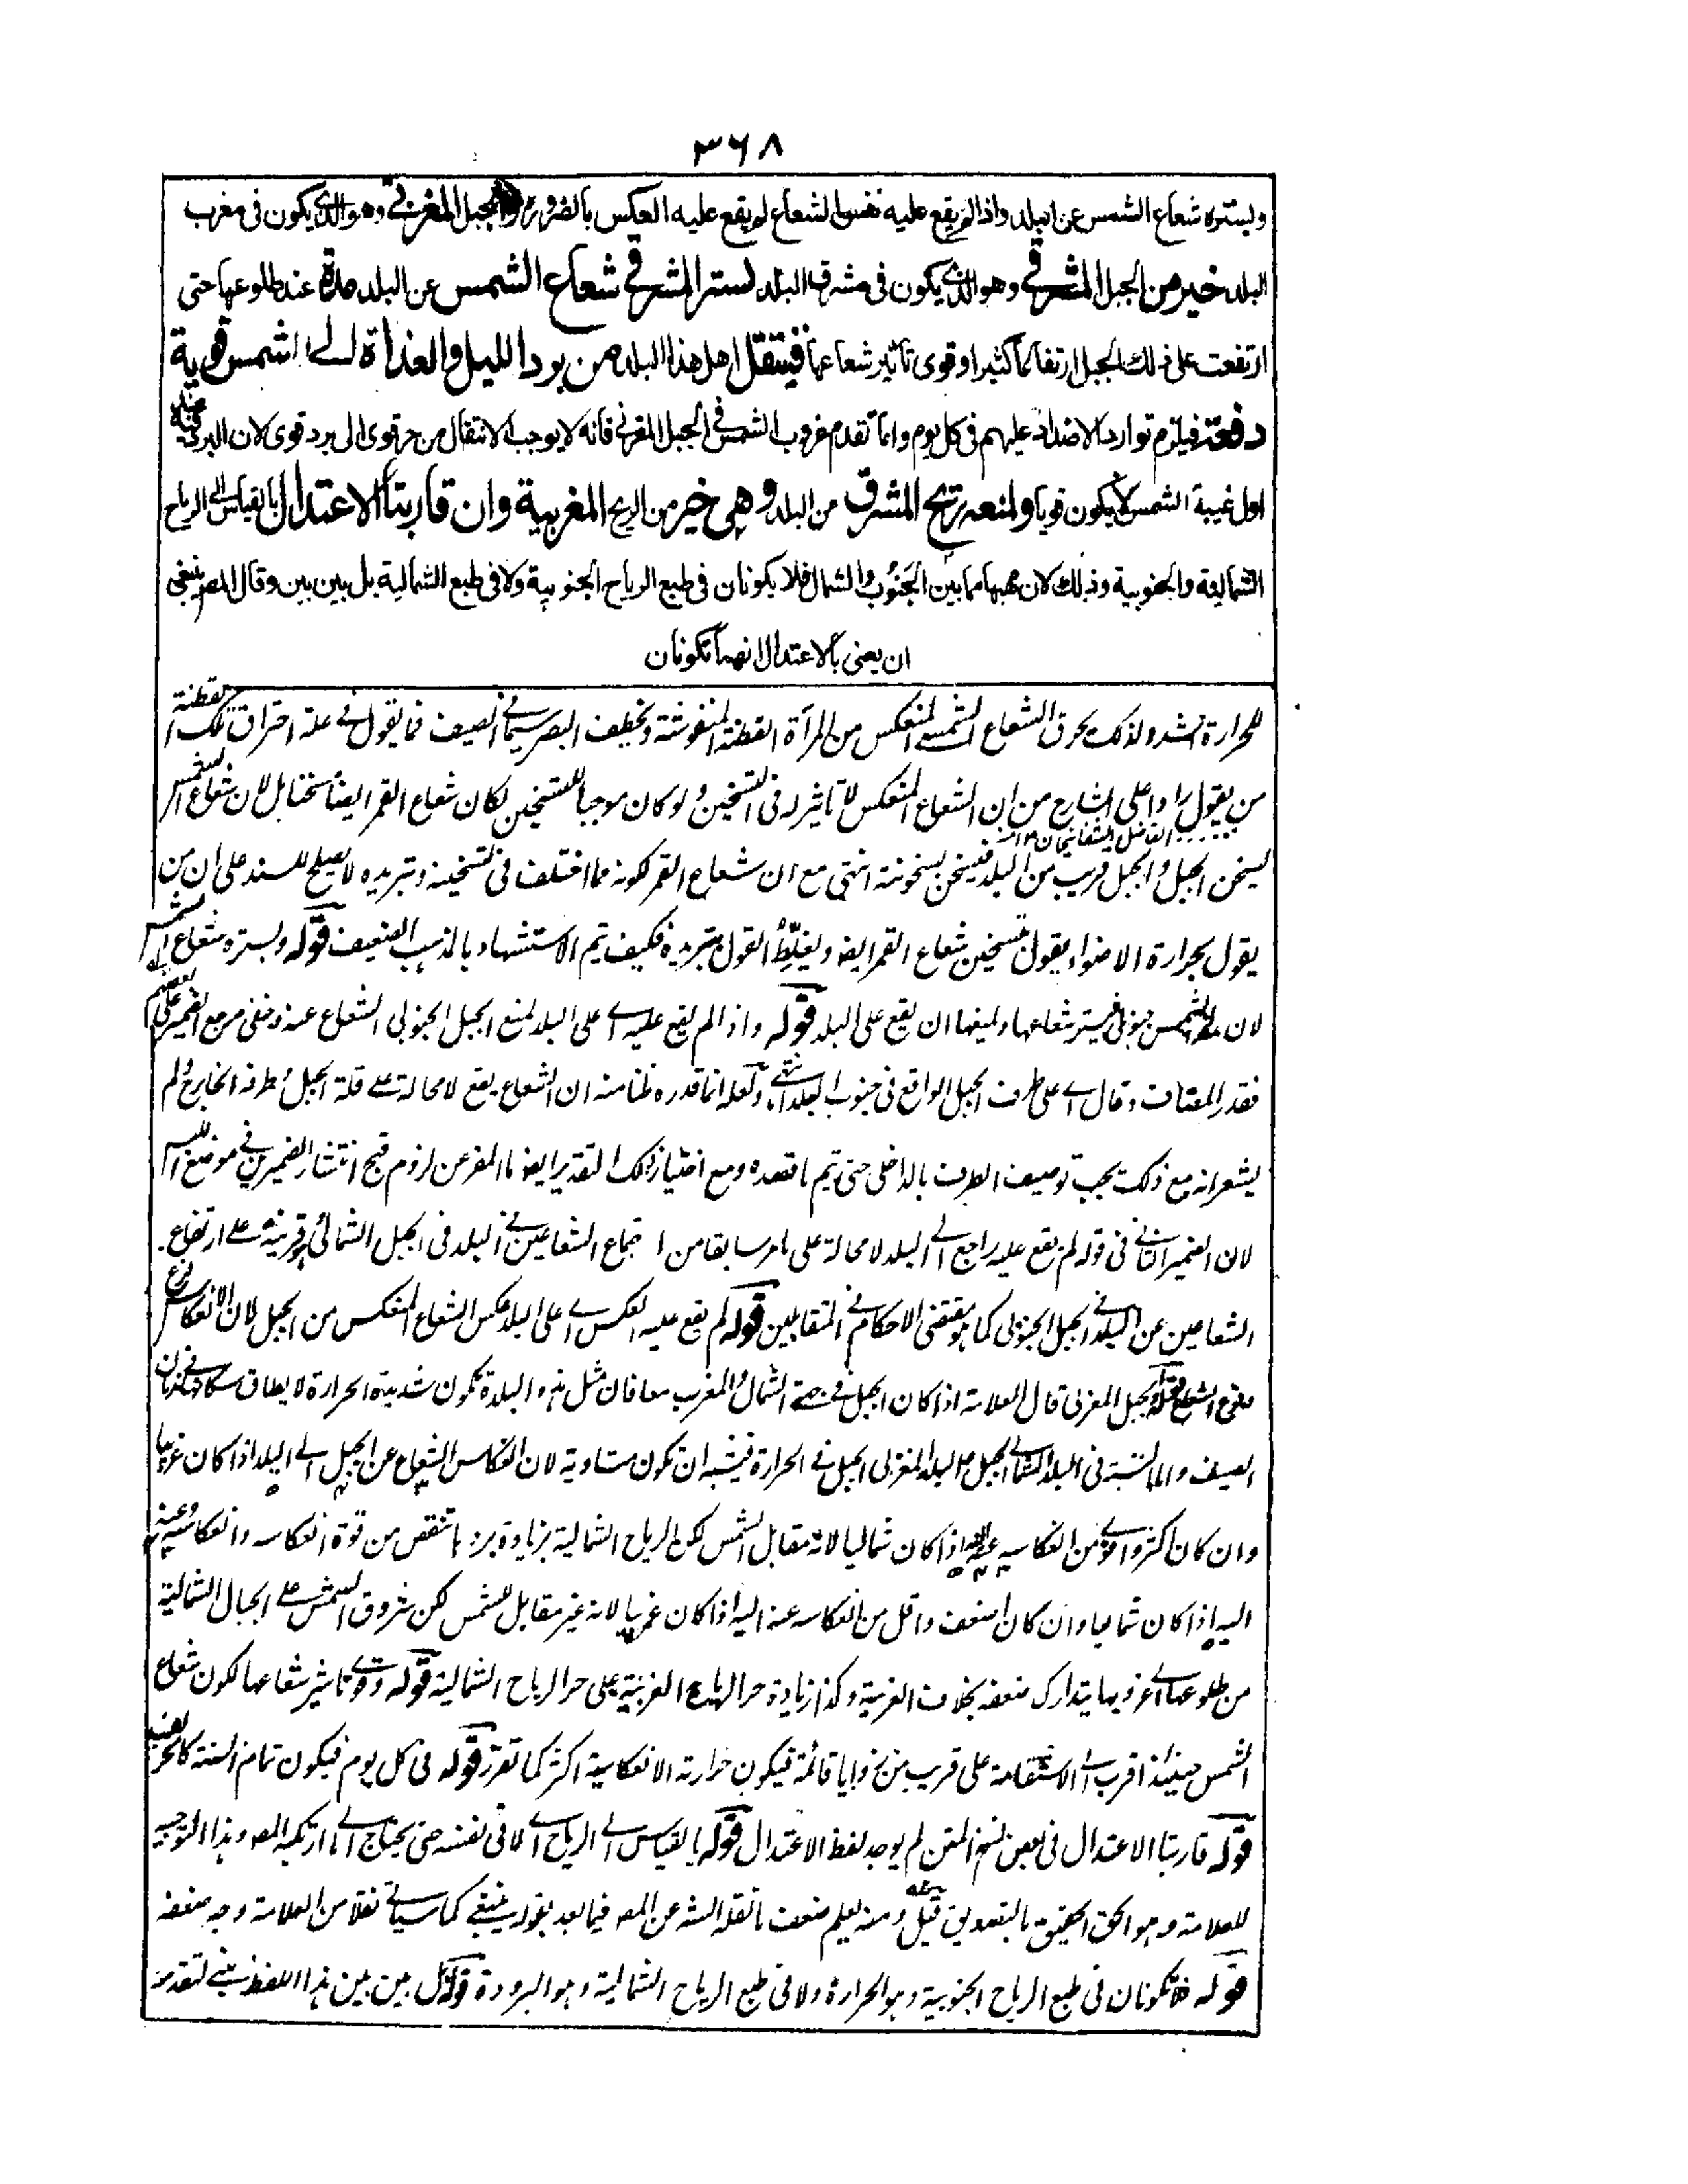 ٣٦٨
ولستره شعاع الشمس عن البلد واذا لم يقع عليه نفس الشعاع لم يقع عليه العكس بالضرورة والجبل المغربي وهو الذي يكون فى مغرب
البلد خير من الجبل المشرقي وهو الذي يكون فى مشرق البلد لستر المشرقي شعاع الشمس عن البلد مدة عند طلوعها حتى
ارتفعت على ذلك الجبل ارتفاعا كثيرا وقوى تاثير شعاعها فينتقل اهل هذا البلد من برد الليل والغداة الى شمس قوية
دفعة فيلزم توارد الاضداد عليهم فى كل يوم واما تقدم غروب الشمس فى الجبل المغربي فانه لا يوجب الانتقال من حر قوى الى برد قوى لان البرد عند
اول غيبة الشمس لا يكون قويا ولمنعه ريح المشرق من البلد وهى خير من الريح المغربية وان قاربتا الاعتدال بالقياس الى الرياح
الشمالية والجنوبية وذلك لان مهبهما ما بين الجنوب والشمال فلا يكونان فى طبع الرياح الجنوبية ولا فى طبع الشمالية بل بين بين وقال المصـ ينبغى
ان يعنى بالاعتدال انهما تكونان
للحرارة اشد ولذلك يحرق الشعاع الشمسي المنعكس من المرآة القطنة المنفوشة ويخطف البصر سيما في الصيف فما يقول في علة احتراق تلك القطنة
من يقول رادا على الشارح من ان الشعاع المنعكس لا تاثير له فى التسخين ولو كان موجبا للتسخين لكان شعاع القمر ايضا مسخنا بل لان شعاع الشمس
يسخن الجبل والجبل قريب من البلد فيسخن بسخونته انتهى مع ان شعاع القمر لكونه مما اختلف فى تسخينه وتبريده لا يصلح للسند على ان من
يقول بحرارة الاضواء يقول بتسخين شعاع القمر ايضا ويغلّط القول بتبريده فكيف يتم الاستشهاد بالمذهب الضعيف قوله ولستره شعاع الشمس
لان الشمس جنوبي فيستر شعاعها ويمنعها ان يقع على البلد قوله واذا لم يقع عليه اے على البلد لمنع الجبل الجنوبى الشعاع عنه وخفى مرجع الضمير على بعضهم
فقدر المضاف وقال اے على طرف الجبل الواقع فى جنوب البلد انتهى ولعله انما قدره ظنا منه ان الشعاع يقع لا محالة على قلة الجبل وطرفه الخارج ولم
يشعر انه مع ذلك يجب توصيف الطرف بالداخلى حتى يتم ما قصده ومع اختيار ذلك التقدير ايضا ما المفر عن لزوم قبح انتشار الضميرين في موضع اللبس
لان الضمير الثاني فى قوله لم يقع عليه راجع الى البلد لا محالة على ما مر سابقا من اجتماع الشعاعين في البلد فى الجبل الشمالي قرينة على ارتفاع
الشعاعين عن البلد في الجبل الجنوبى كما هو مقتضى الاحكام في المتقابلين قوله لم يقع عليه العكس اے على البلد عكس الشعاع المنعكس من الجبل لان الانعكاس فرع
وقوع الشعاع قوله والجبل المغربى قال العلامة اذا كان الجبل في جهة الشمال والمغرب معا فان مثل هذه البلدة تكون شديدة الحرارة لا يطاق سكناها في زمان
الصيف واما النسبة فى البلد الشمالي الجبل والبلد المغربى الجبل في الحرارة فيشبه ان تكون متساوية لان انعكاس الشعاع عن الجبل الى البلد اذا كان غربيا
وان كان اكثر واقوى من انعكاسه عنه اليه اذا كان شماليا لانه مقابل الشمس لكن الرياح الشمالية بزيادة بردها تنقص من قوة انعكاسه وانعكاسه عنه
اليه اذا كان شماليا وان كان اضعف واقل من انعكاسه عنه اليه اذا كان غربيا لانه غير مقابل للشمس لكن شروق الشمس على الجبال الشمالية
من طلوعها الى غروبها يتدارك ضعفه بخلاف الغربية وكذا زيادة حر الرياح الغربية على حر الرياح الشمالية قوله وقوى تاثير شعاعها لكون شعاع
الشمس حينئذ اقرب الى الاستقامة على قريب من زوايا قائمة فيكون حرارته الانعكاسية اكثر كما تقرر قوله فى كل يوم فيكون تمام السنة كالخريف
قوله قاربتا الاعتدال فى بعض نسخ المتن لم يوجد لفظ الاعتدال قوله بالقياس الى الرياح اے لا فى نفسه حتى يحتاج الى ما ارتكبه المصـ وهذا التوجيه
للعلامة وهو الحق الحقيق بالتصديق قيل ومنه يعلم ضعف ما نقله الشـ عن المصـ فيما بعد بقوله ينبغي كما سياتي نقلا من العلامة وجه ضعفه
قوله فلا تكونان فى طبع الرياح الجنوبية وهو الحرارة ولا فى طبع الرياح الشمالية وهو البرودة قوله بل بين بين هذا اللفظ مبني لتقدمه